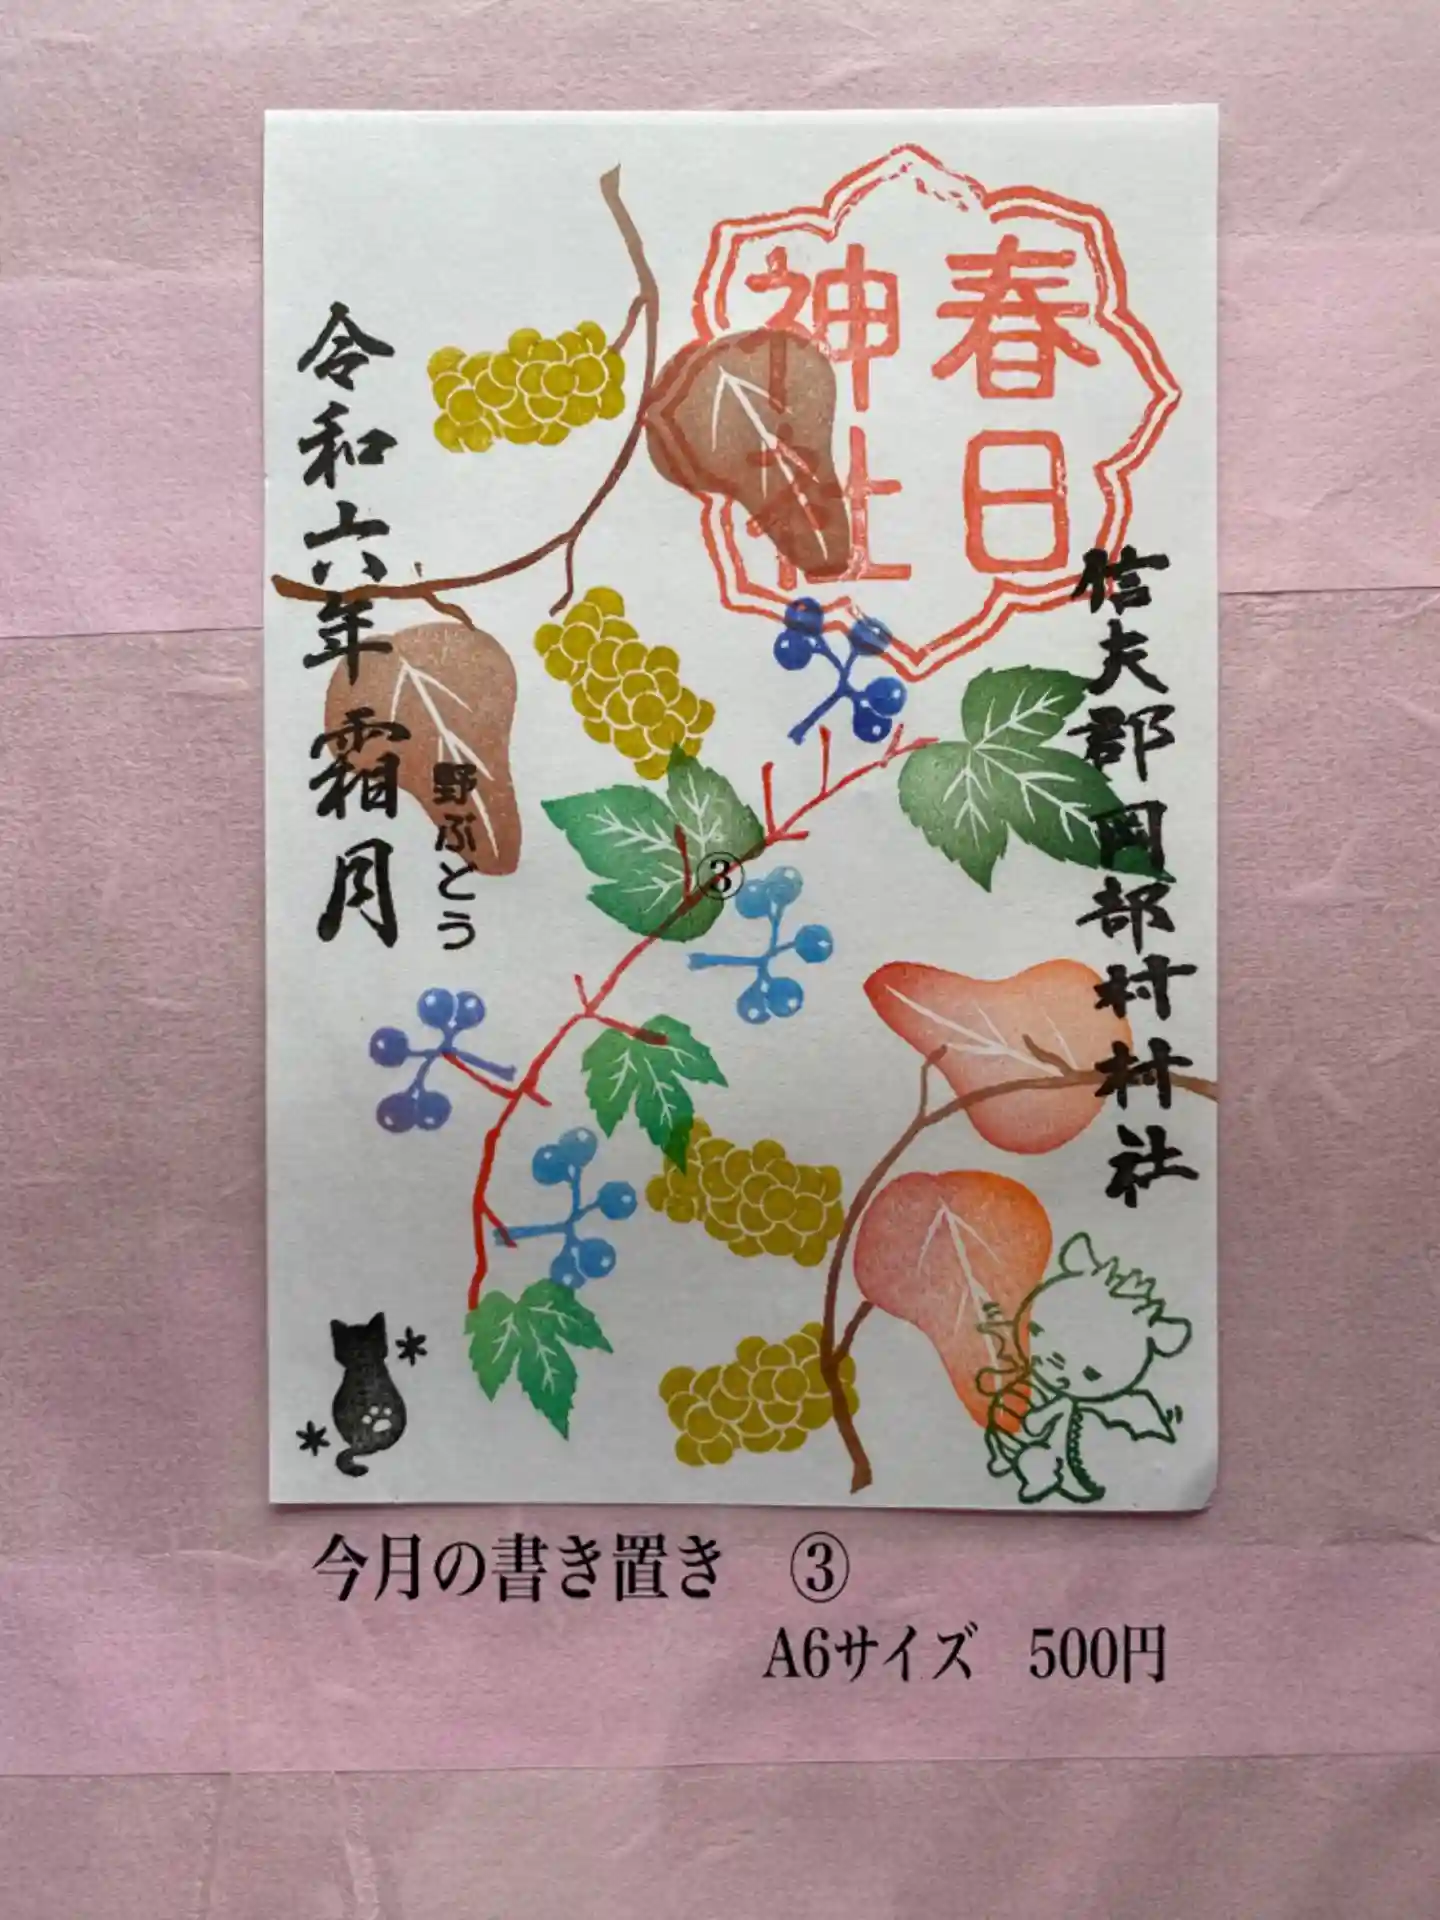 春日
神社
信夫郡岡部村村社
令和六年霜月
野ぶどう
③
今月の書き置き　③
A6サイズ　500円